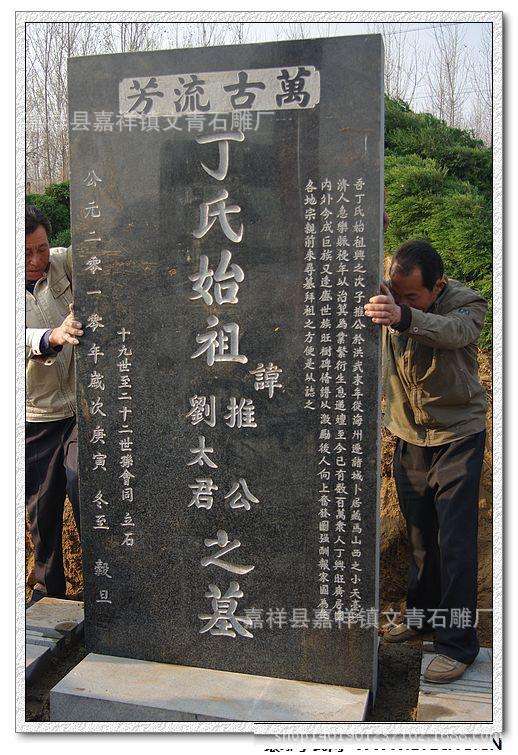 萬古流芳
吾丁氏始祖興之次子推公於洪武末年從海州遷諸城卜居藏馬山西之小天臺
濟人急樂賑後年以治箕為業繁衍生息至今已有數百萬衆人丁興旺廣居國
内外今成巨族又逢盛世族旺樹碑脩譜以激勵後人向上奮發圖强酬報家國為
各地宗親前來尋墓拜祖之方便是以誌之
丁氏始祖
諱推公
劉太君
之墓
十九世至二十二世孫會同 立石
公元二零一零年歲次庚寅 冬至 穀旦
嘉祥县嘉祥镇文青石雕厂
嘉祥县嘉祥镇文青石雕厂